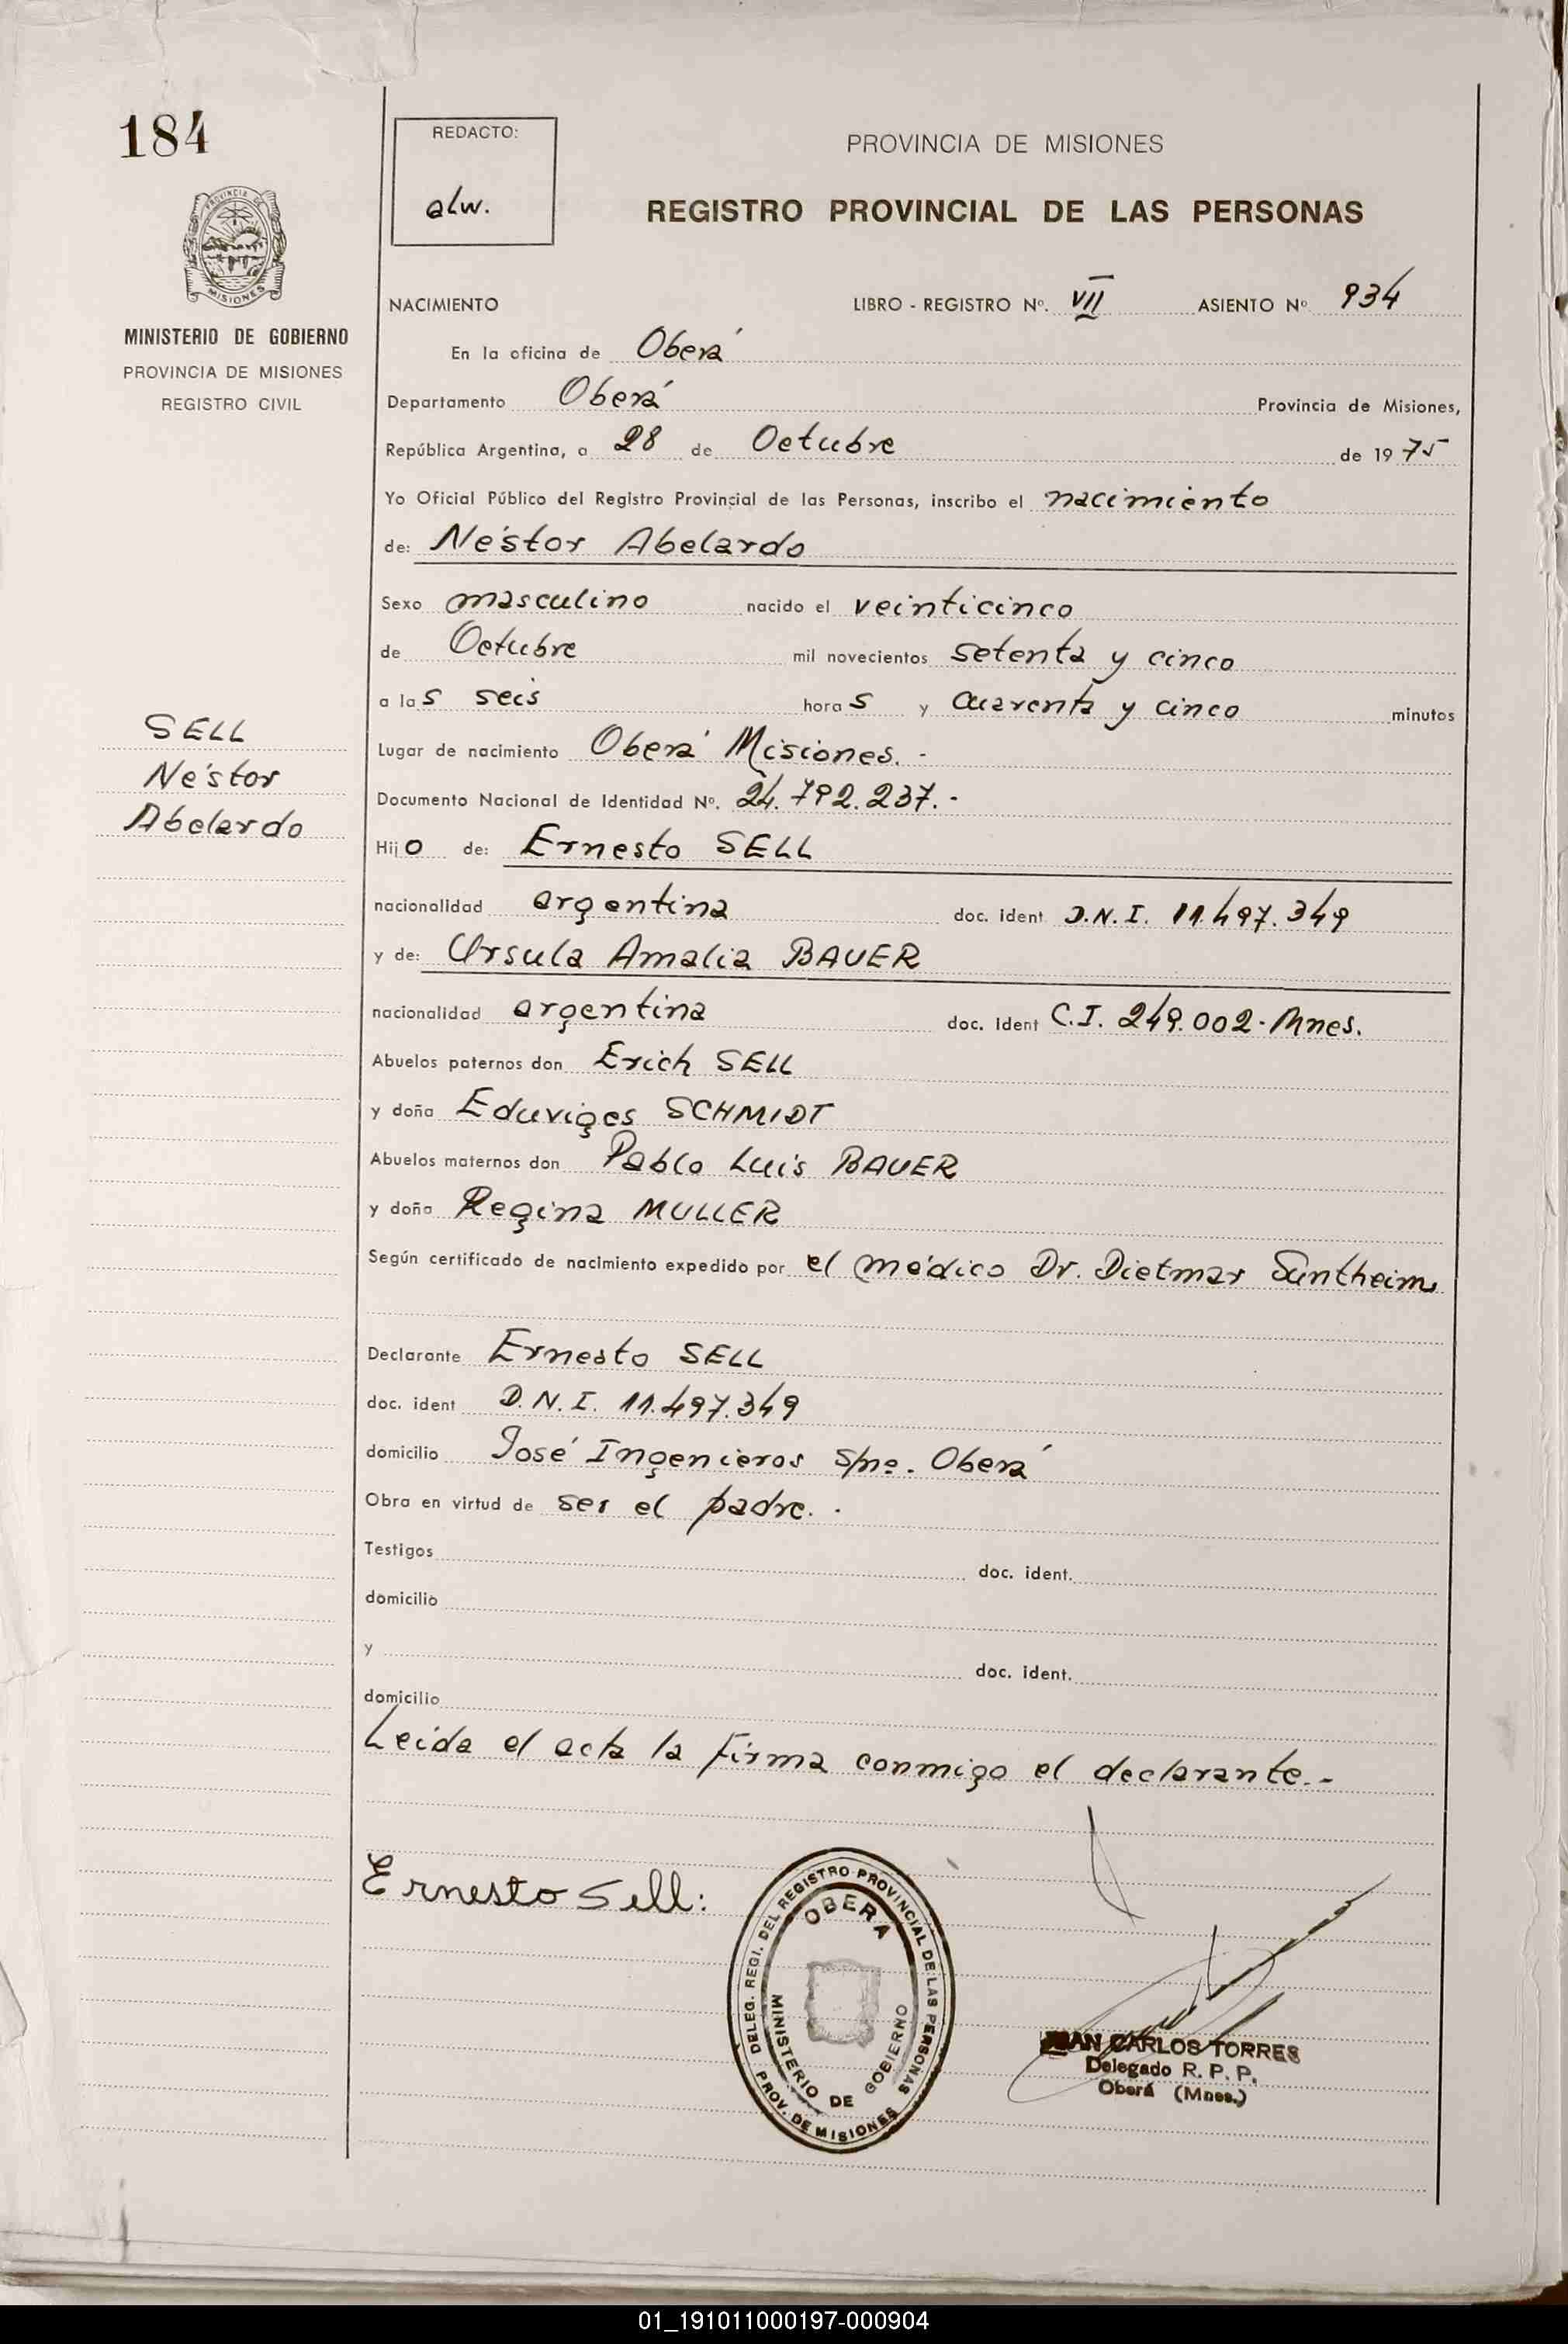 184
REDACTO:
alw.
PROVINCIA DE MISIONES
REGISTRO PROVINCIAL DE LAS PERSONAS
PROVINCIA DE
MISIONES
MINISTERIO DE GOBIERNO
PROVINCIA DE MISIONES
REGISTRO CIVIL
NACIMIENTO LIBRO - REGISTRO Nº. VII ASIENTO Nº 934
En la oficina de Oberá
Departamento Oberá Provincia de Misiones,
República Argentina, a 28 de Octubre de 1975
Yo Oficial Público del Registro Provincial de las Personas, inscribo el nacimiento
de: Néstor Abelardo
Sexo masculino nacido el veinticinco
de Octubre mil novecientos setenta y cinco
a las seis horas y cuarenta y cinco minutos
SELL
Néstor
Abelardo
Lugar de nacimiento Oberá Misiones. -
Documento Nacional de Identidad Nº. 24.792.237.-
Hijo de: Ernesto SELL
nacionalidad argentina doc. ident D.N.I. 11.497.349
y de: Ursula Amalia BAUER
nacionalidad argentina doc. Ident C.I. 249.002-Mnes.
Abuelos paternos don Erich SELL
y doña Eduviges SCHMIDT
Abuelos maternos don Pablo Luis BAUER
y doña Regina MULLER
Según certificado de nacimiento expedido por el médico Dr. Dietmar Suntheim
Declarante Ernesto SELL
doc. ident D.N.I. 11.497.349
domicilio José Ingenieros s/nº. Oberá
Obra en virtud de ser el padre. -
Testigos doc. ident.
domicilio
y doc. ident.
domicilio
Leida el acta la firma conmigo el declarante.-
Ernesto Sell:
DELEG. REGI. DEL REGISTRO PROVINCIAL DE LAS PERSONAS
OBERA
MINISTERIO DE GOBIERNO
PROV. DE MISIONES
JUAN CARLOS TORRES
Delegado R. P. P.
Oberá (Mnes.)
01_191011000197-000904